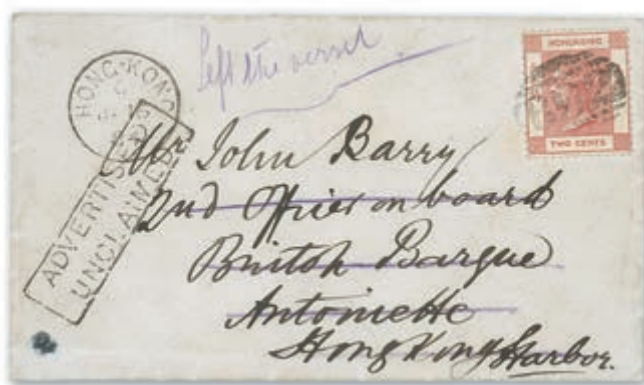 Left the vessel
HONGKONG
TWO CENTS
HONG-KONG
ADVERTISED
UNCLAIMED
Mr John Barry
2nd Officer on board
British Barque
Antoinette
Hong Kong Harbor.